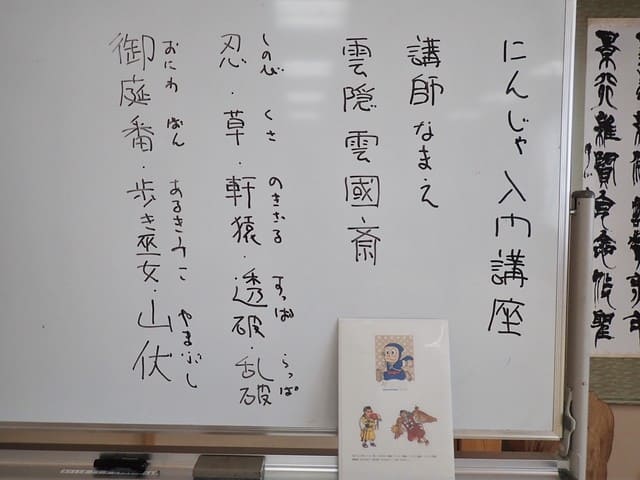 にんじゃ入門講座
講師なまえ
雲隠雲國斎
しのび くさ のきざる すっぱ らっぱ
忍・草・軒猿・透破 乱破
おにわ ばん あるきみこ やまぶし
御庭番・歩き巫女・山伏